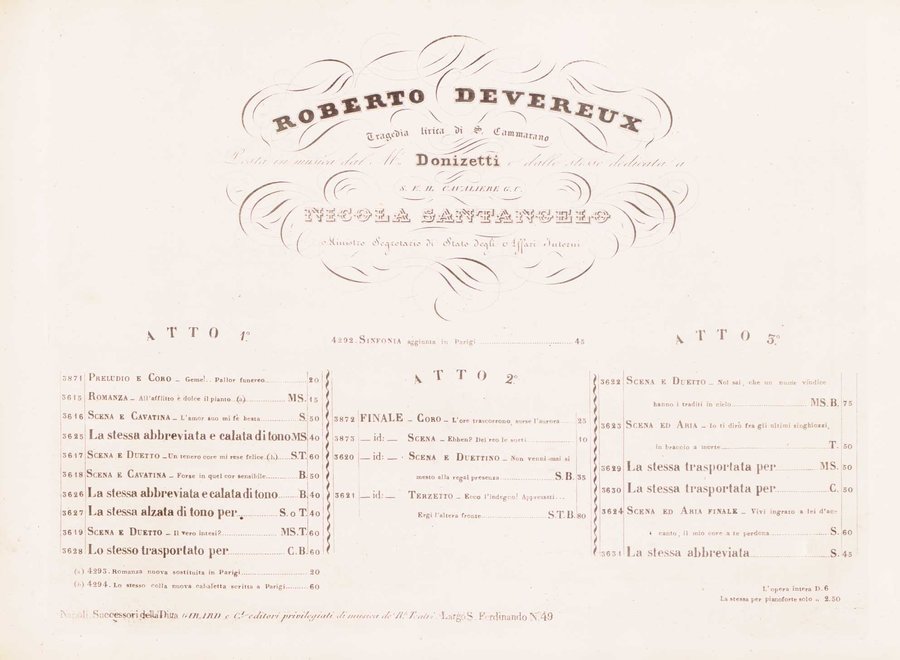 ROBERTO DEVEREUX
Tragedia lirica di S. Cammarano
Posta in musica dal M.º Donizetti e dallo stesso dedicata a
S. E. IL CAVALIERE G. C.
NICOLA SANTANGELO
Ministro Segretario di Stato degli Affari Interni
ATTO 1.º
3871 PRELUDIO E CORO _ Geme!.. Pallor funereo 20
3615 ROMANZA _ All'afflitto è dolce il pianto (a) MS. 15
3616 SCENA E CAVATINA _ L'amor suo mi fè beata S. 50
3625 La stessa abbreviata e calata di tono MS. 40
3617 SCENA E DUETTO _ Un tenero core mi rese felice (b.) S.T. 60
3618 SCENA E CAVATINA _ Forse in quel cor sensibile B. 50
3626 La stessa abbreviata e calata di tono B. 40
3627 La stessa alzata di tono per S. o T. 40
3619 SCENA E DUETTO _ Il vero intesi? MS.T. 60
3628 Lo stesso trasportato per C.B. 60
(a) 4293. Romanza nuova sostituita in Parigi 20
(b) 4294. Lo stesso colla nuova cabaletta scritta a Parigi 60
4292. SINFONIA aggiunta in Parigi 45
ATTO 2.º
3872 FINALE _ CORO _ L'ore trascorrono, surse l'aurora 25
3873 _ id: _ SCENA _ Ebben? Del reo le sorti 10
3620 _ id: _ SCENA E DUETTINO _ Non venni mai sì
mesto alla regal presenza S.B. 35
3621 _ id: _ TERZETTO _ Ecco l'indegno! Appressati...
Ergi l'altera fronte S.T.B. 80
ATTO 3.º
3622 SCENA E DUETTO _ Nol sai, che un nume vindice
hanno i traditi in cielo MS.B. 75
3623 SCENA ED ARIA _ Io ti dirò fra gli ultimi singhiozzi,
in braccio a morte T. 50
3629 La stessa trasportata per MS. 50
3630 La stessa trasportata per C. 50
3624 SCENA ED ARIA FINALE _ Vivi ingrato a lei d'ac-
canto; il mio core a te perdona S. 60
3631 La stessa abbreviata S. 45
L'opera intera D. 6
La stessa per pianoforte solo „ 2.50
Napoli, Successori della Ditta GIRARD e C.i editori privilegiati di musica de' R.i Teatri Largo S. Ferdinando N.º 49